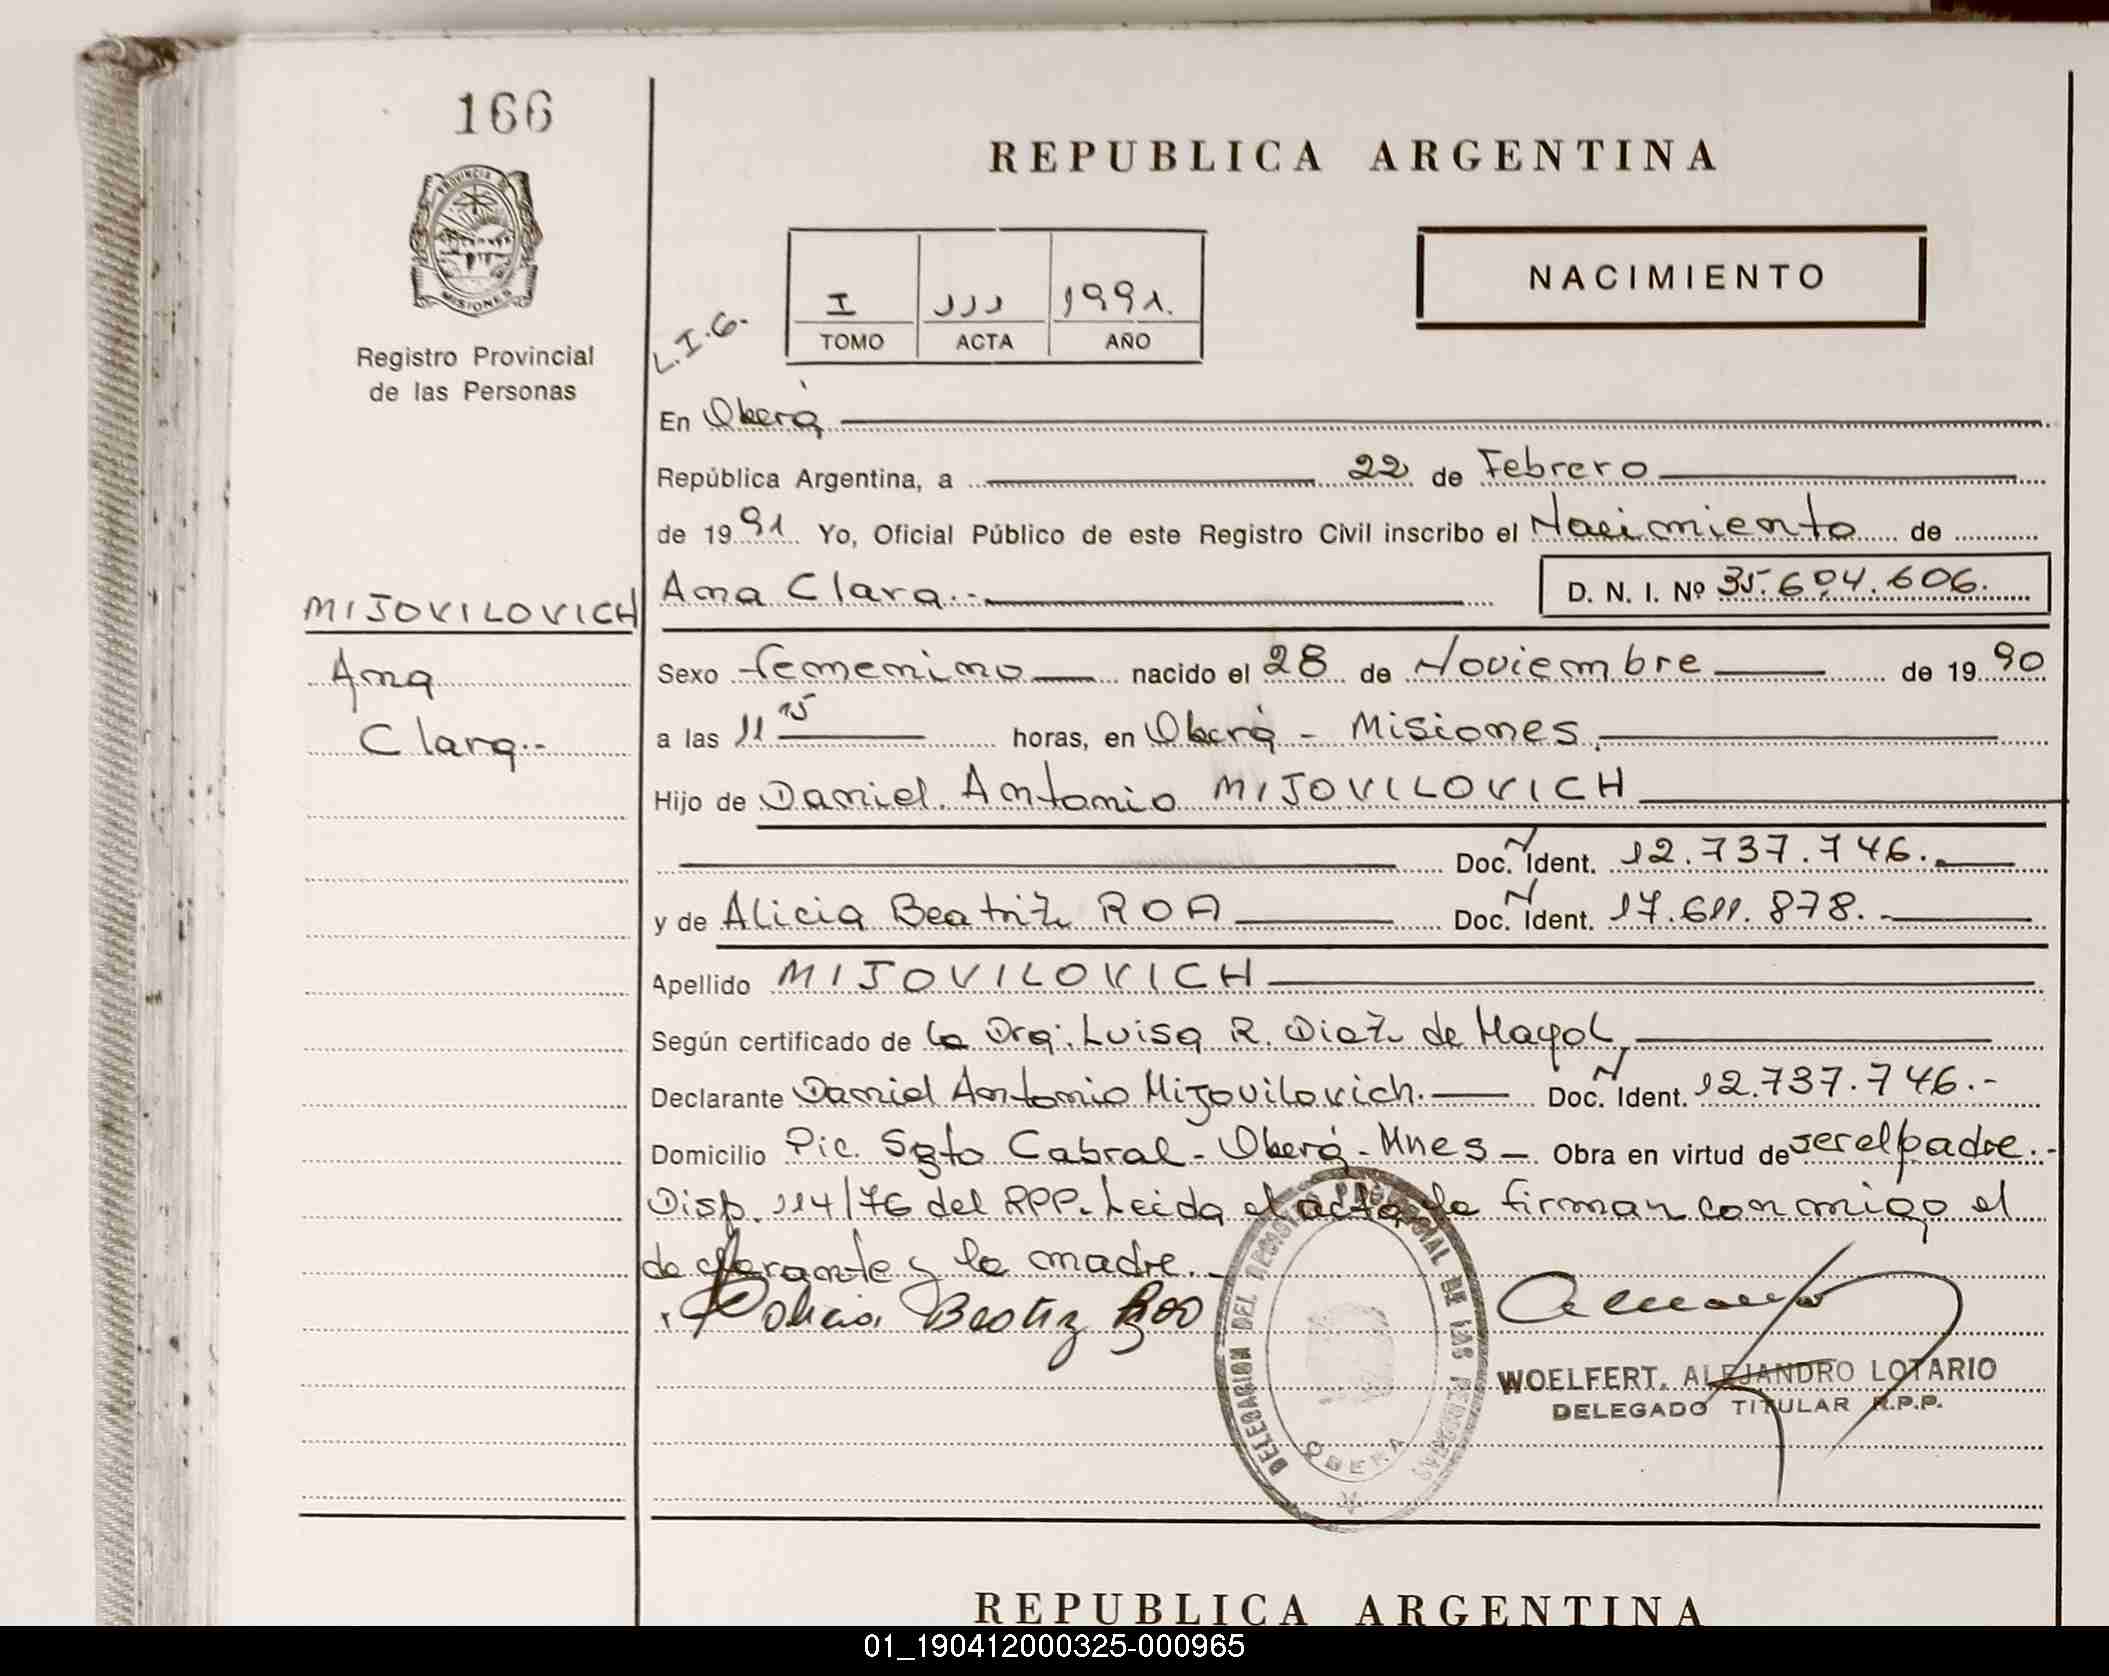 166
PROVINCIA DE
MISIONES
Registro Provincial
de las Personas
MIJOVILOVICH
Ana
Clara.-
REPUBLICA ARGENTINA
NACIMIENTO
L.I.G.-
I 111 1991.
TOMO ACTA AÑO
En Oberá
República Argentina, a 22 de Febrero
de 1991 Yo, Oficial Público de este Registro Civil inscribo el Nacimiento de
Ana Clara.- D. N. I. Nº 35.604.606.
Sexo femenino nacido el 28 de Noviembre de 1990
a las 11 15 horas, en Oberá - Misiones.
Hijo de Daniel Antonio MIJOVILOVICH
Doc. N Ident. 12.737.746.-
y de Alicia Beatriz ROA Doc. N Ident. 17.611.878.-
Apellido MIJOVILOVICH
Según certificado de la Dra. Luisa R. Diaz de Mayol,
Declarante Daniel Antonio Mijovilovich. Doc. N Ident. 12.737.746.-
Domicilio Pic. Sgto Cabral - Oberá - Mnes - Obra en virtud de ser el padre.-
Disp. 114/76 del RPP. Leida el acta la firman conmigo el
declarante y la madre.-
Beatriz Roa
DELEGACION DEL REGISTRO PROVINCIAL DE LAS PERSONAS
OBERA
WOELFERT, ALEJANDRO LOTARIO
DELEGADO TITULAR R.P.P.
REPUBLICA ARGENTINA
01_190412000325-000965